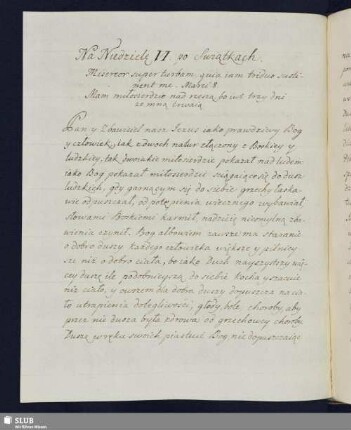 Na Niedzielę II po Swiątkach.
Misereor super turbam, quia iam triduo susti-
nent me. Marci 8.
Mam miłosierdzie nad rzeszą bo iuż trzy dni
ze mną trwaią
Pan y Zbawiciel nasz Iezus iako prawdziwy Bog
y człowiek, iak z dwoch natur złączony z Boskiey y
ludzkiey, tak dwoiakie miłosierdzie pokazał nad ludem
iako Bog pokazał miłosierdzie sciągaiące się do dusz
ludzkich, gdy garnącym się do siebie grzechy łaska-
wie odpuszczał, od potępienia wiecznego wybawiał
słowami Boskiemi karmił, nadzieię niemylną zba-
wienia czynił. Bog albowiem zawsze ma staranie
o dobro duszy każdego człowieka większe y pilniey
sze niż o dobro ciała, bo iako duch nayczystszy wię-
cey duszę iako podobnieyszą do siebie kocha y szanuie
niż ciało, y owszem dla dobra duszy dopuszcza na cia-
ło utrapienia dolegliwości, głody, bole, choroby aby
przez nie dusza była zdrowa od grzechowey choroby
Duszę w ręku swoich piastuie Bog nie dopuszczaiąc
SLUB
Wir führen Wissen.